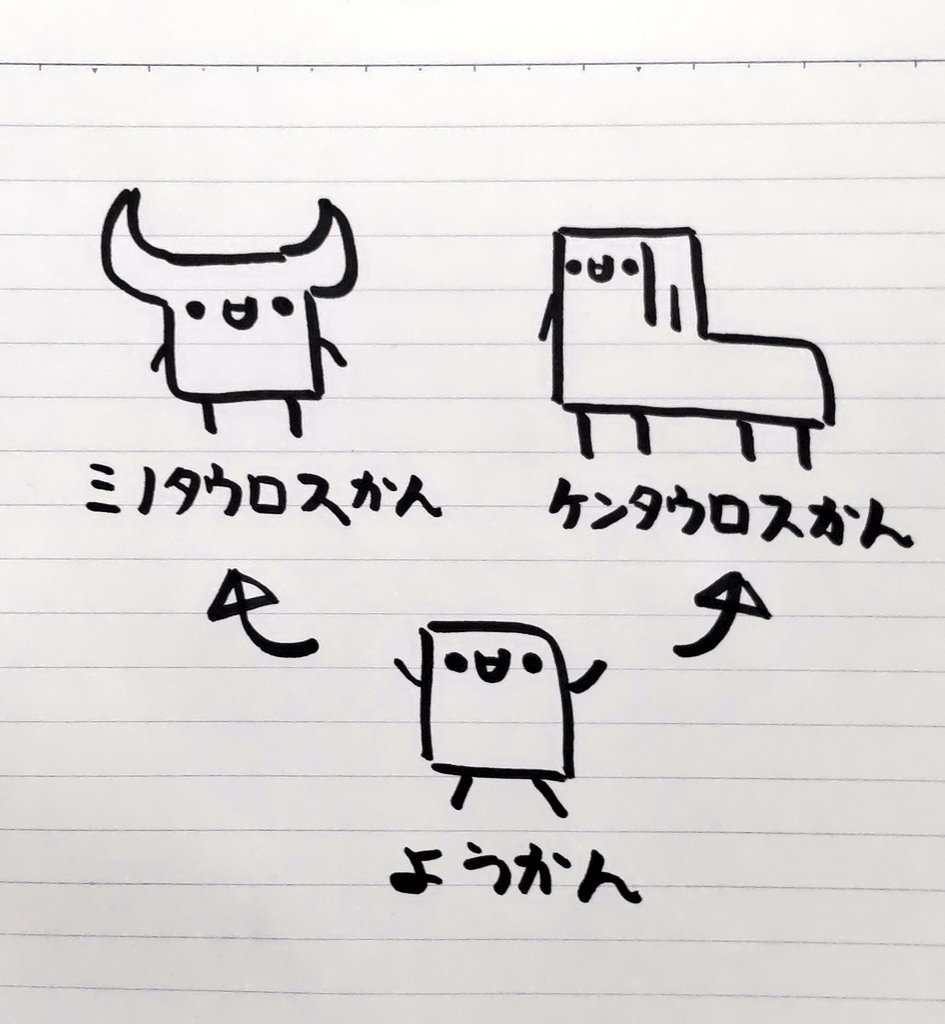 ミノタウロスかん
ケンタウロスかん
ようかん